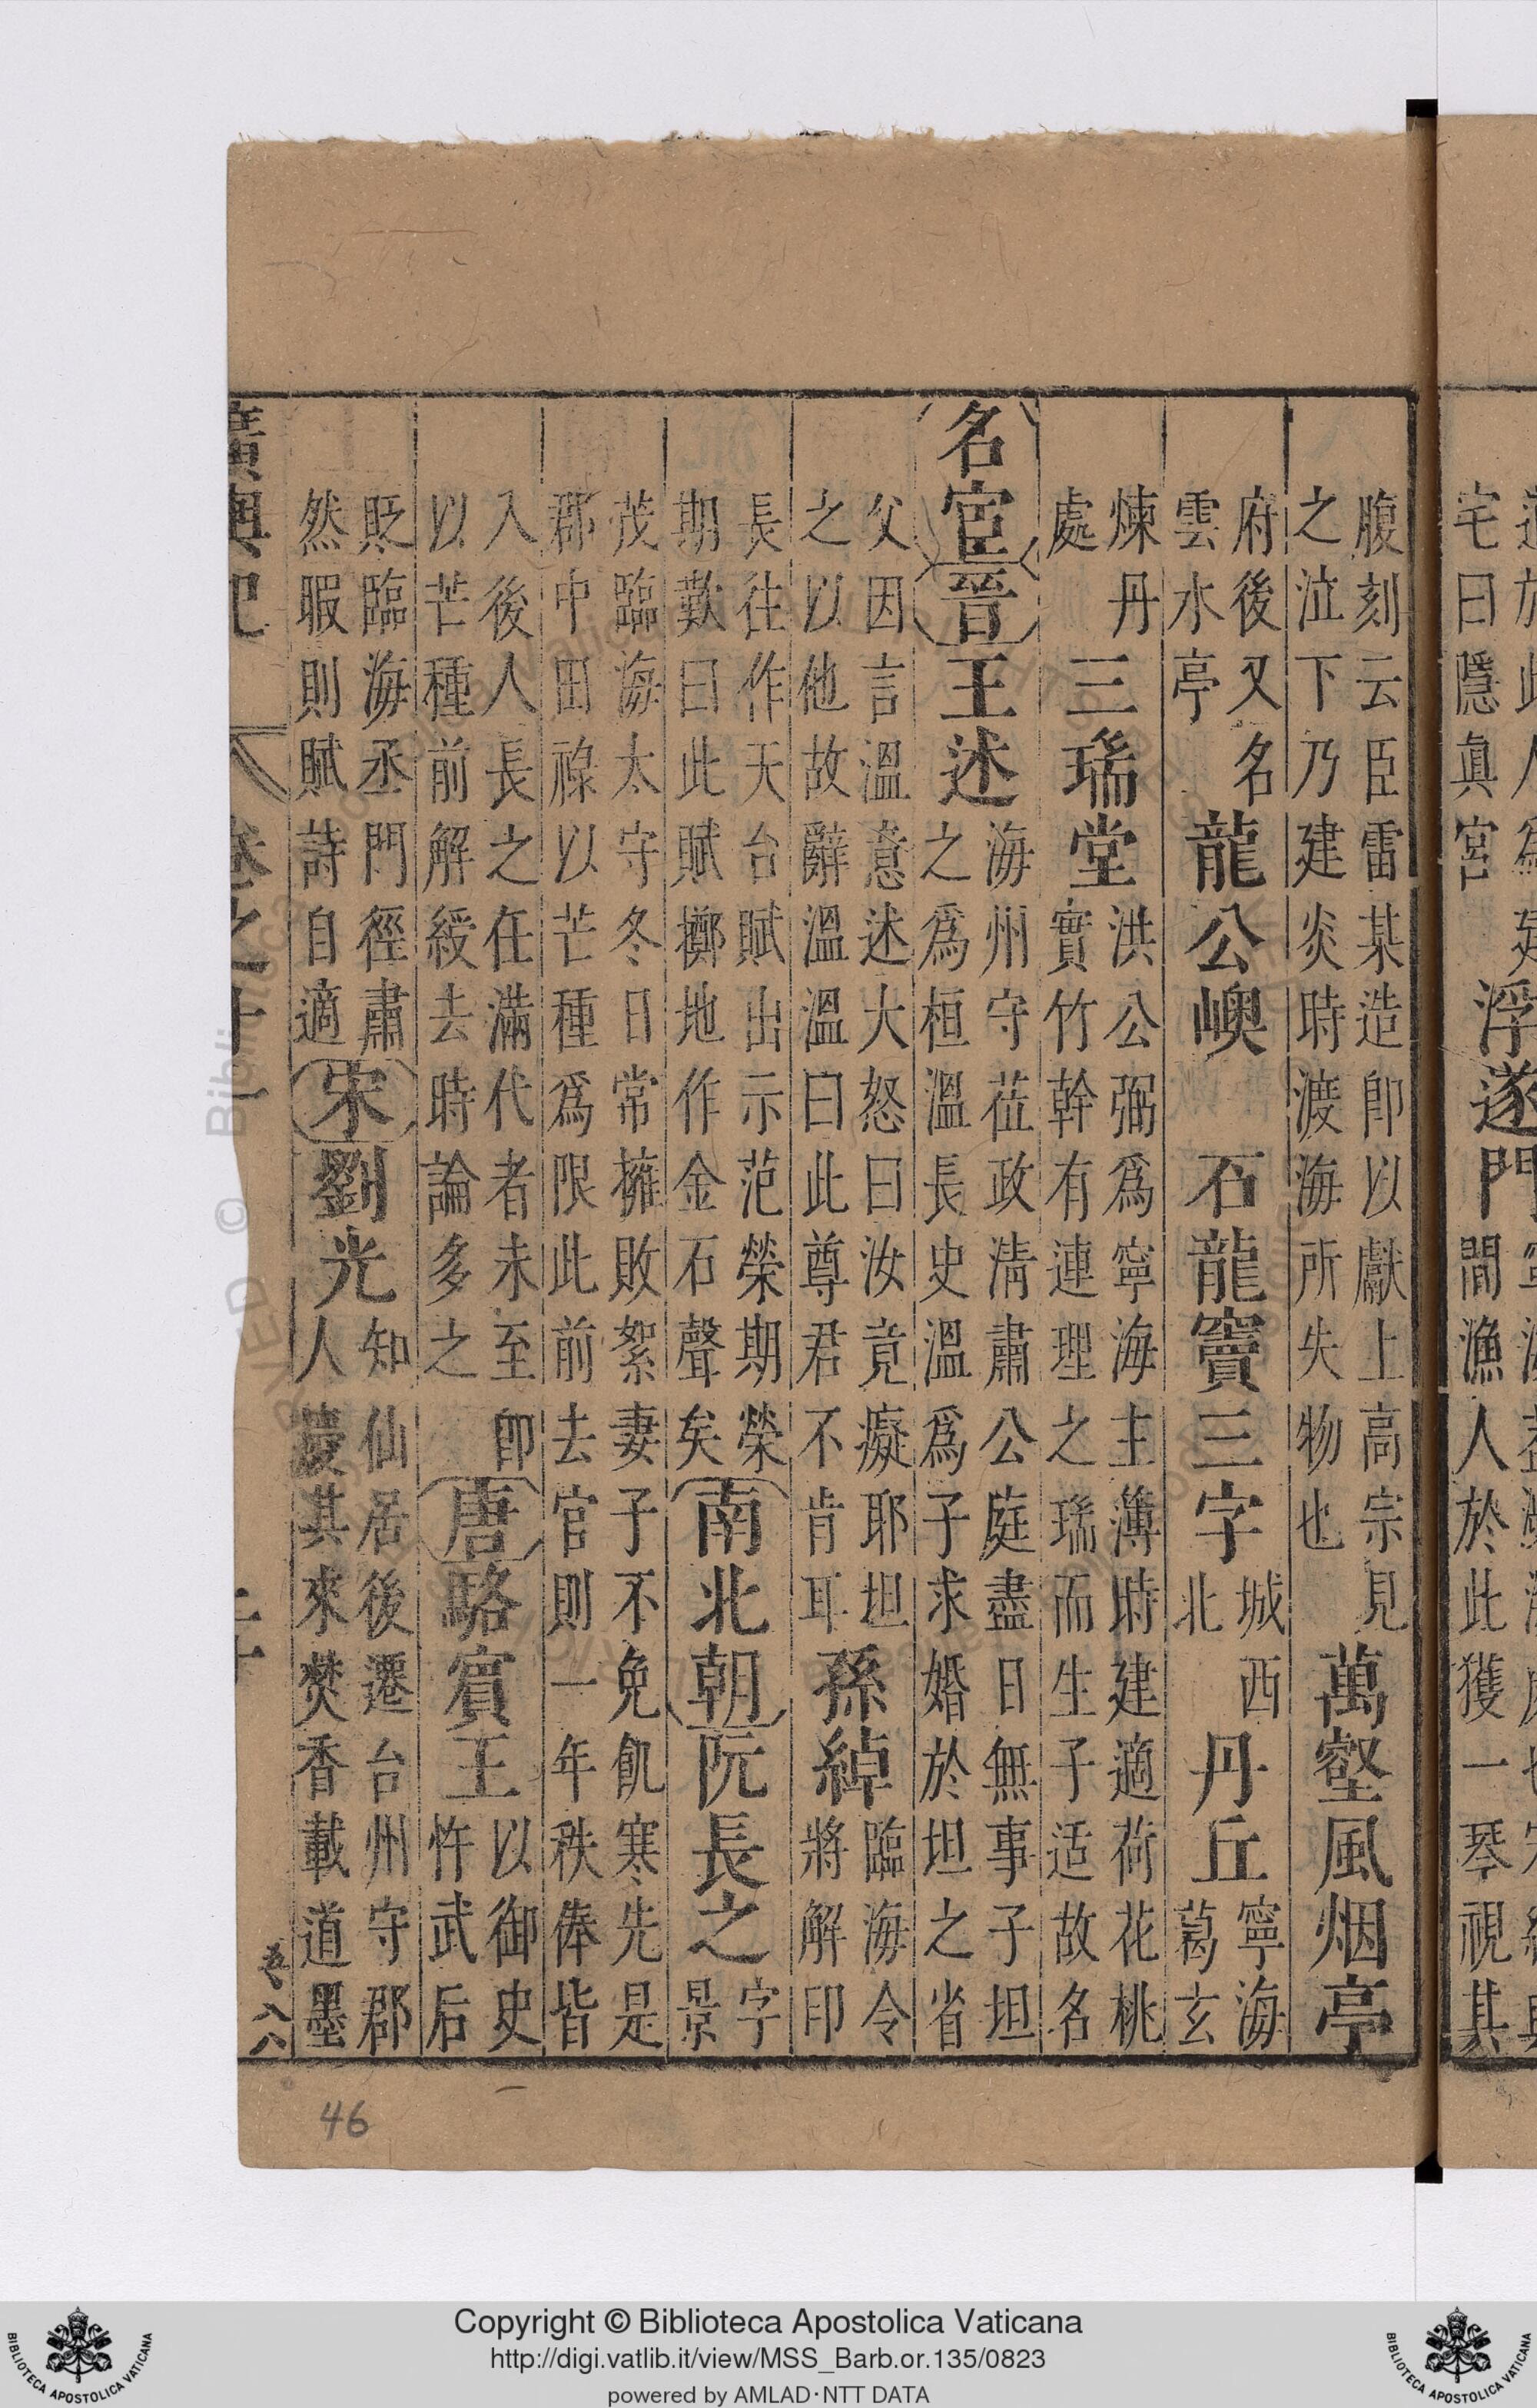 宅曰隱眞宮
浮遂門
間漁人於此獲一琴視其
腹刻云臣雷某造卽以獻上高宗見
之泣下乃建炎時渡海所失物也
萬壑風烟亭
府後又名
雲水亭
龍公㠗
石龍竇三字
城西
北
丹丘
寧海
葛玄
煉丹
處
三瑞堂
洪公弼爲寧海主薄時建適荷花桃
實竹幹有連理之瑞而生子适故名
名宦
晉
王述
海州守莅政清肅公庭盡日無事子坦
之爲桓溫長史溫爲子求婚於坦之省
父因言溫意述大怒曰汝竟癡耶坦
之以他故辭溫溫曰此尊君不肯耳
孫綽
臨海令
將解印
長往作天台賦出示范榮期榮
期歎曰此賦擲地作金石聲矣
南北朝
阮長之
字
景
茂臨海太守冬日常擁敗絮妻子不免飢寒先是
郡中田祿以芒種爲限此前去官則一年秩俸皆
入後人長之任滿代者未至卽
以芒種前解綬去時論多之
唐
駱賓王
以御史
忤武后
貶臨海丞門徑肅
然暇則賦詩自適
宋
劉光
知仙居後遷台州守郡
人慶其來焚香載道墨
廣輿記 卷之十一 二十
46
Copyright © Biblioteca Apostolica Vaticana
http://digi.vatlib.it/view/MSS_Barb.or.135/0823
powered by AMLAD·NTT DATA
BIBLIOTECA APOSTOLICA VATICANA
BIBLIOTECA APOSTOLICA VATICANA